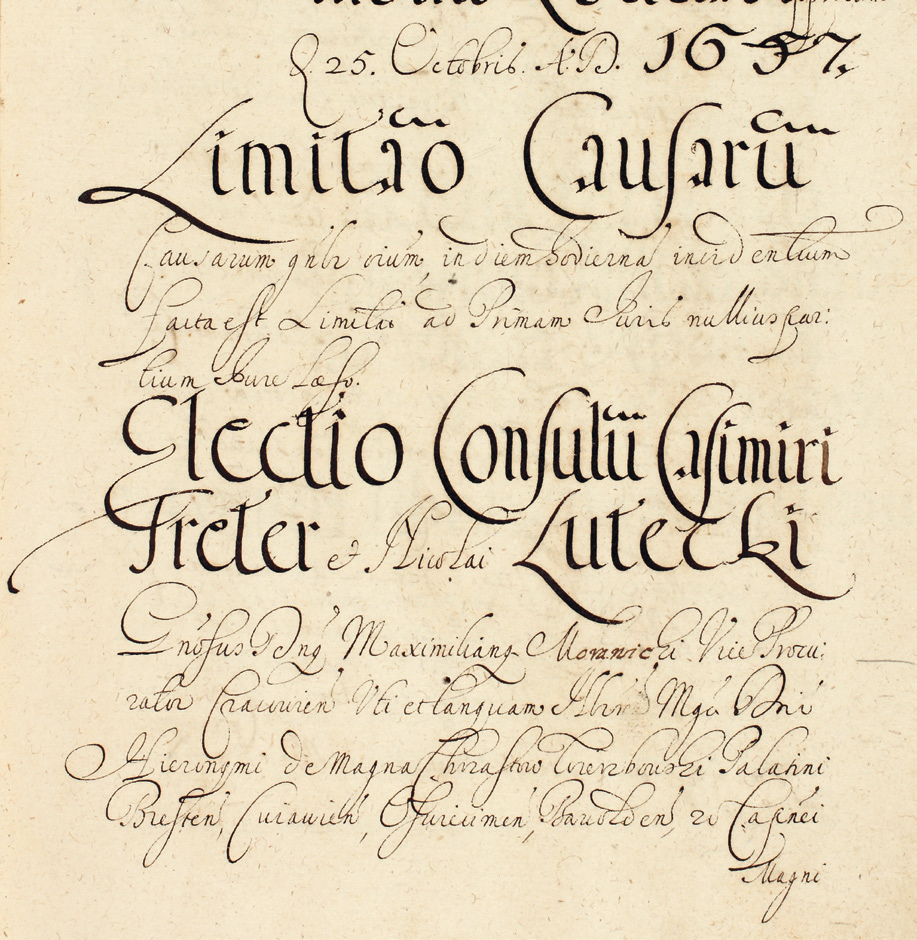 d. 25. Octobris. A.D. 1657.
Limitao Causarū
Causarum gnlr oium, in diem hodierna incidentium
facta est Limitao ad Primam Juris nullius par:
tium Jure Læso.
Electio Consulū Casimiri
Treter et Nicolai Lutecki
Gnosus Dnus Maximilianus Moranicki Vice Procu:
rator Cracovien Uti et tanquam Mgci Dni
Hieronymi de Magna Chrzastow Wierzbowski Palatini
Bresten, Cuiavien, Osvecimen, ac Capnei
Magni